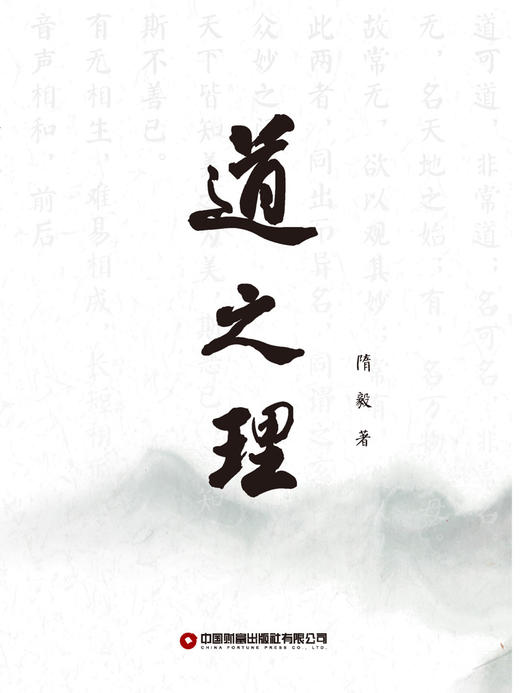 道之理
隋毅 著
道可道，非常道；名可名，非常名，
无，名天地之始；有，名万
故常无，欲以观其妙，常有
此两者，同出而异名，同谓之
众妙之
天下皆知美
斯不善已。
有无相生，难易相成，长
音声相和，前后
中国财富出版社有限公司
CHINA FORTUNE PRESS CO., LTD.